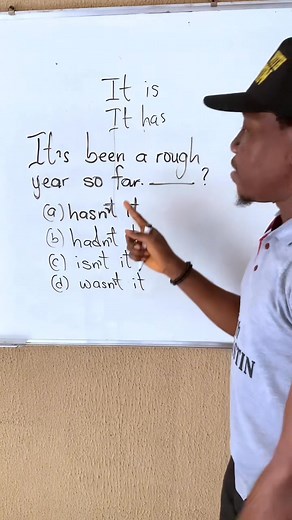 It is
It has
It's been a rough
year so far. ____ ?
(a) hasn't it
(b) hadn't it
(c) isn't it
(d) wasn't it